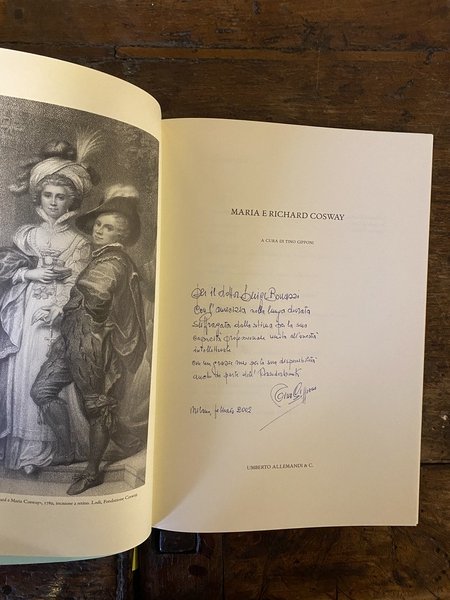 MARIA E RICHARD COSWAY
A CURA DI TINO GIPPONI
Per il dottor Luigi Bonazzi
con l'amicizia nella lunga durata
suffragata dalla stima per la sua
capacità professionale unita all'onestà
intellettuale
con un grazie per la sua disponibilità
anche da parte dell'
Tino Gipponi
Milano, febbraio 2002
UMBERTO ALLEMANDI & C.
e Maria Cosway, 1789, incisione a retino. Lodi, Fondazione Cosway